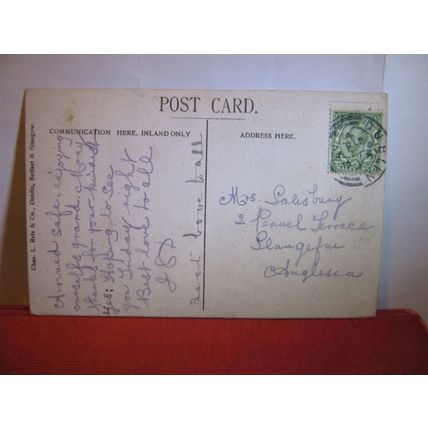 POST CARD.
COMMUNICATION HERE, INLAND ONLY
ADDRESS HERE.
Chas. L. Reis & Co., Dublin, Belfast & Glasgow.
Arrived safe enjoying
ourselfs grand. Many
thanks for your kindness
Yes: Hoping to see
you Friday night
Best love to all
Best love to all
Mrs. Salesbury
2 Penuel Terrace
Llangefni
Anglesea
DUBLIN